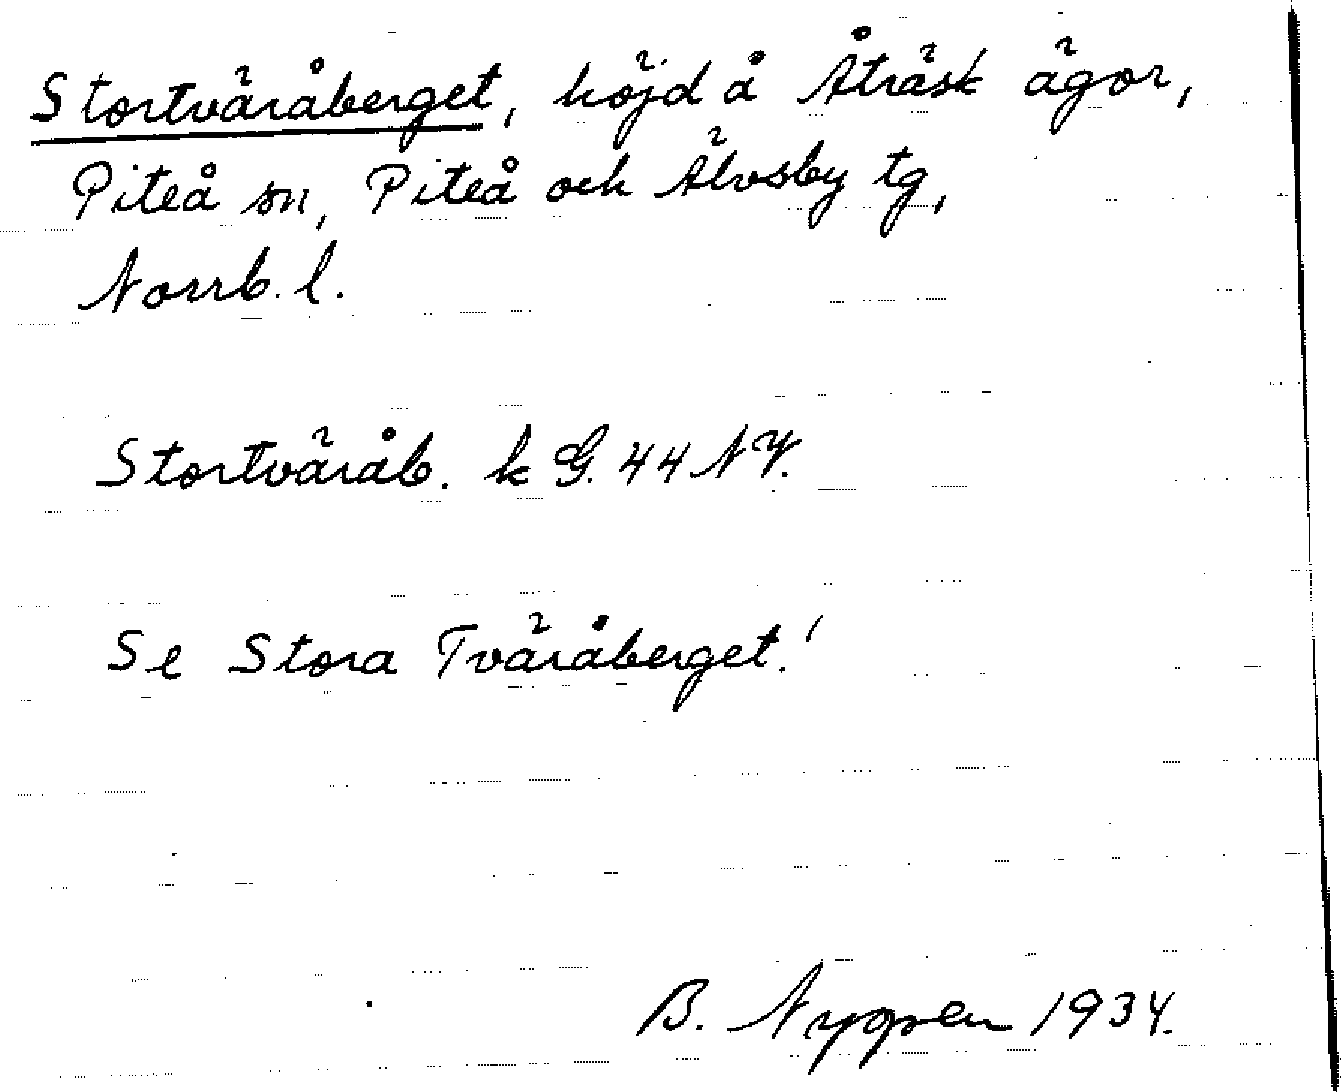 Stortväråberget, höjd å Åträsk ägor,
Piteå sn, Piteå och Älvsby tg,
Norrb. l.
Stortväråb. k G. 44 NV.
Se Stora Tväråberget!
B. Nygren 1934.